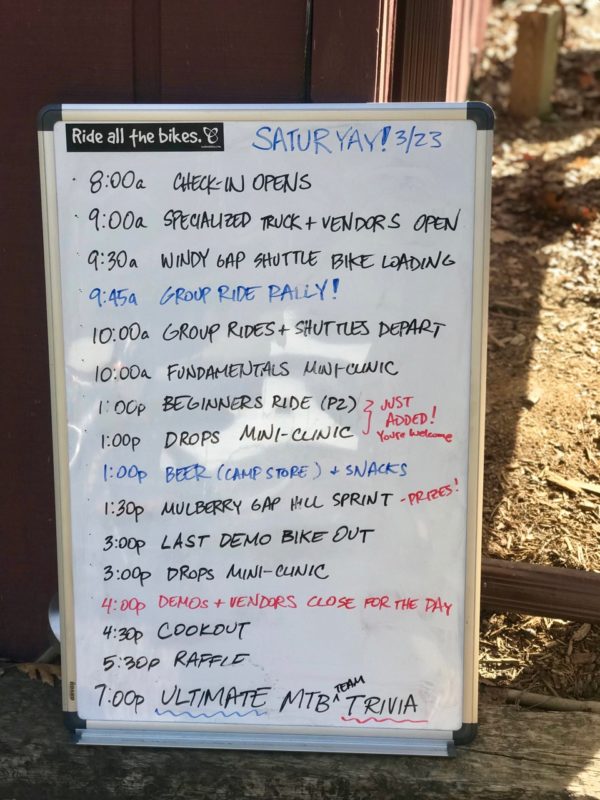 Ride all the bikes.
SATURYAY! 3/23
8:00a CHECK-IN OPENS
9:00a SPECIALIZED TRUCK + VENDORS OPEN
9:30a WINDY GAP SHUTTLE BIKE LOADING
9:45a GROUP RIDE RALLY!
10:00a GROUP RIDES + SHUTTLES DEPART
10:00a FUNDAMENTALS MINI-CLINIC
1:00p BEGINNERS RIDE (P2)
1:00p DROPS MINI-CLINIC
JUST
ADDED!
You're welcome
1:00p BEER (CAMP STORE) + SNACKS
1:30p MULBERRY GAP HILL SPRINT - PRIZES!
3:00p LAST DEMO BIKE OUT
3:00p DROPS MINI-CLINIC
4:00p DEMOS + VENDORS CLOSE FOR THE DAY
4:30p COOKOUT
5:30p RAFFLE
7:00p ULTIMATE MTB ^TEAM TRIVIA